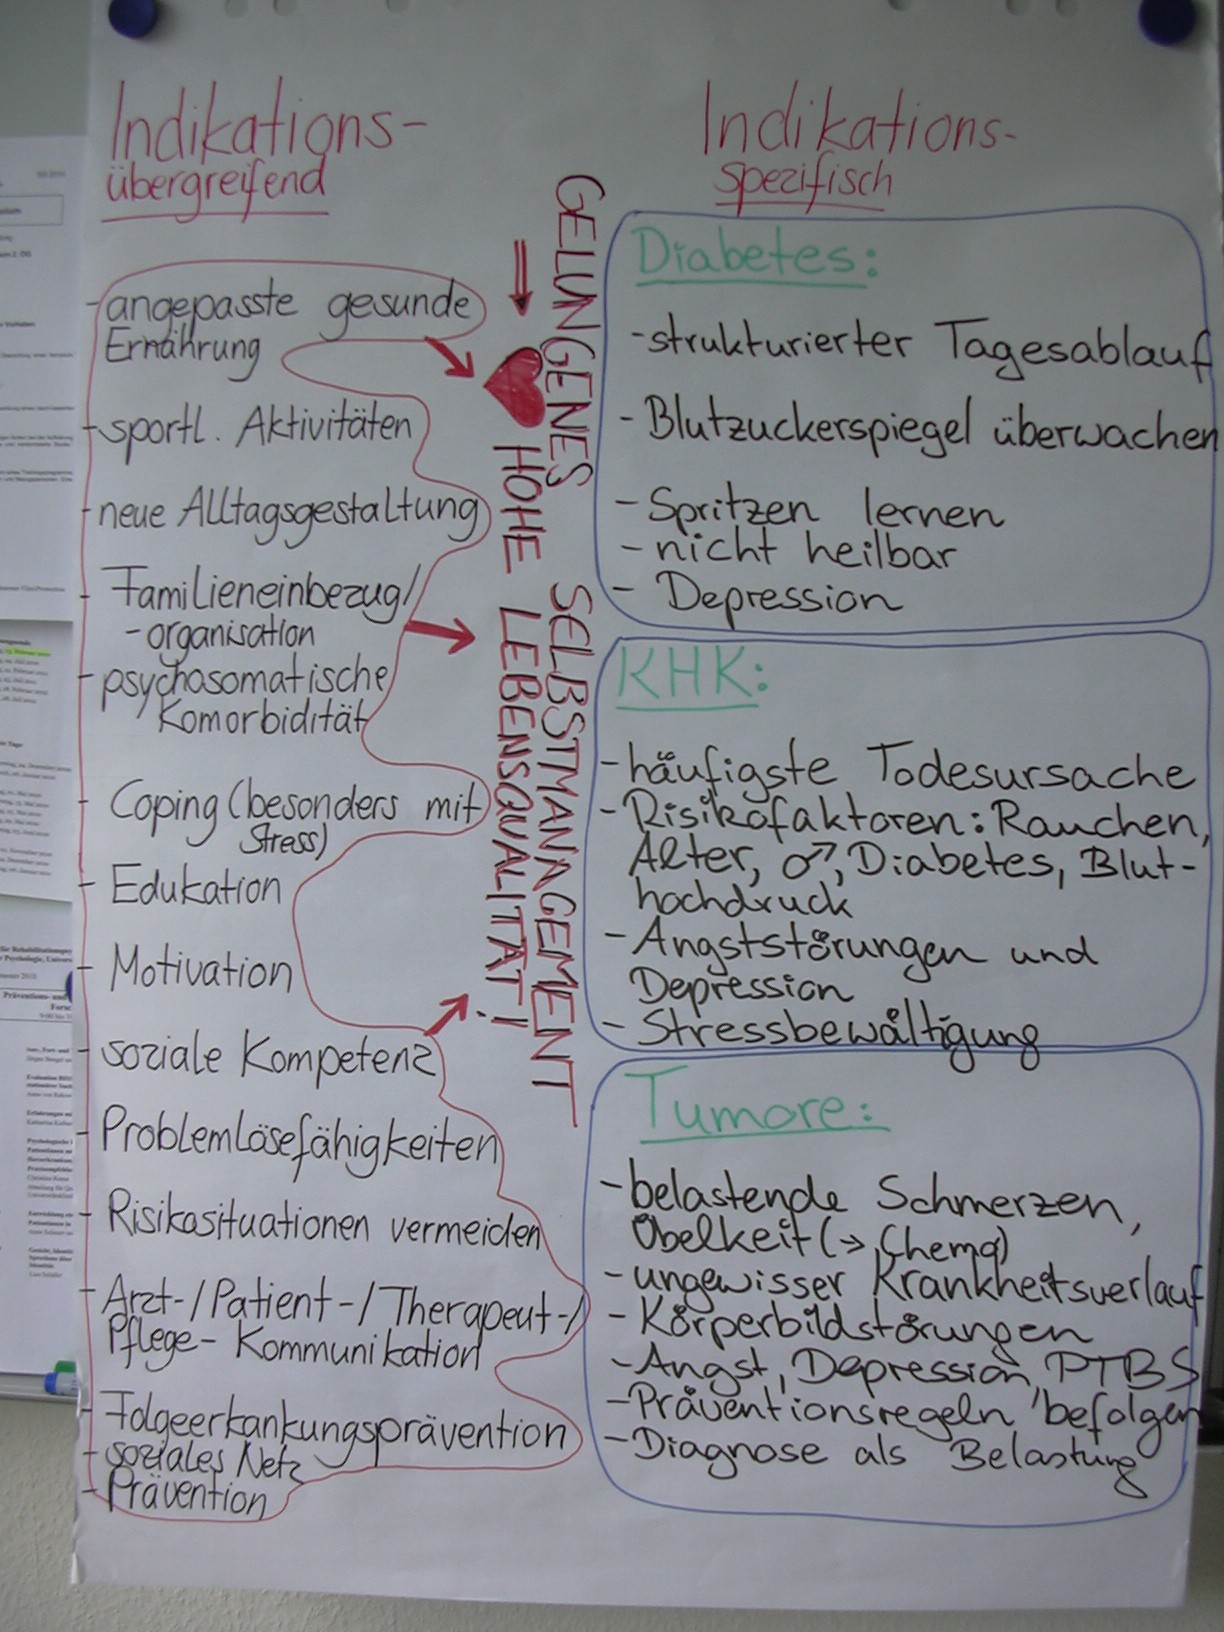 Indikations-
übergreifend
- angepasste gesunde
Ernährung
- sportl. Aktivitäten
- neue Alltagsgestaltung
- Familieneinbezug/
- organisation
- psychosomatische
Komorbidität
- Coping (besonders mit
Stress)
- Edukation
- Motivation
- soziale Kompetenz
- Problemlösefähigkeiten
- Risikosituationen vermeiden
- Arzt-/Patient-/Therapeut-/
Pflege-Kommunikation
- Folgeerkankungsprävention
- soziales Netz
- Prävention
GELUNGENES SELBSTMANAGEMENT
HOHE LEBENSQUALITÄT!
Indikations-
spezifisch
Diabetes:
- strukturierter Tagesablauf
- Blutzuckerspiegel überwachen
- Spritzen lernen
- nicht heilbar
- Depression
KHK:
- häufigste Todesursache
- Risikofaktoren: Rauchen,
Alter, ♂, Diabetes, Blut-
hochdruck
- Angststörungen und
Depression
- Stressbewältigung
Tumore:
- belastende Schmerzen,
Übelkeit (→ Chemo)
- ungewisser Krankheitsverlauf
- Körperbildstörungen
- Angst, Depression, PTBS
- Präventionsregeln befolgen
- Diagnose als Belastung